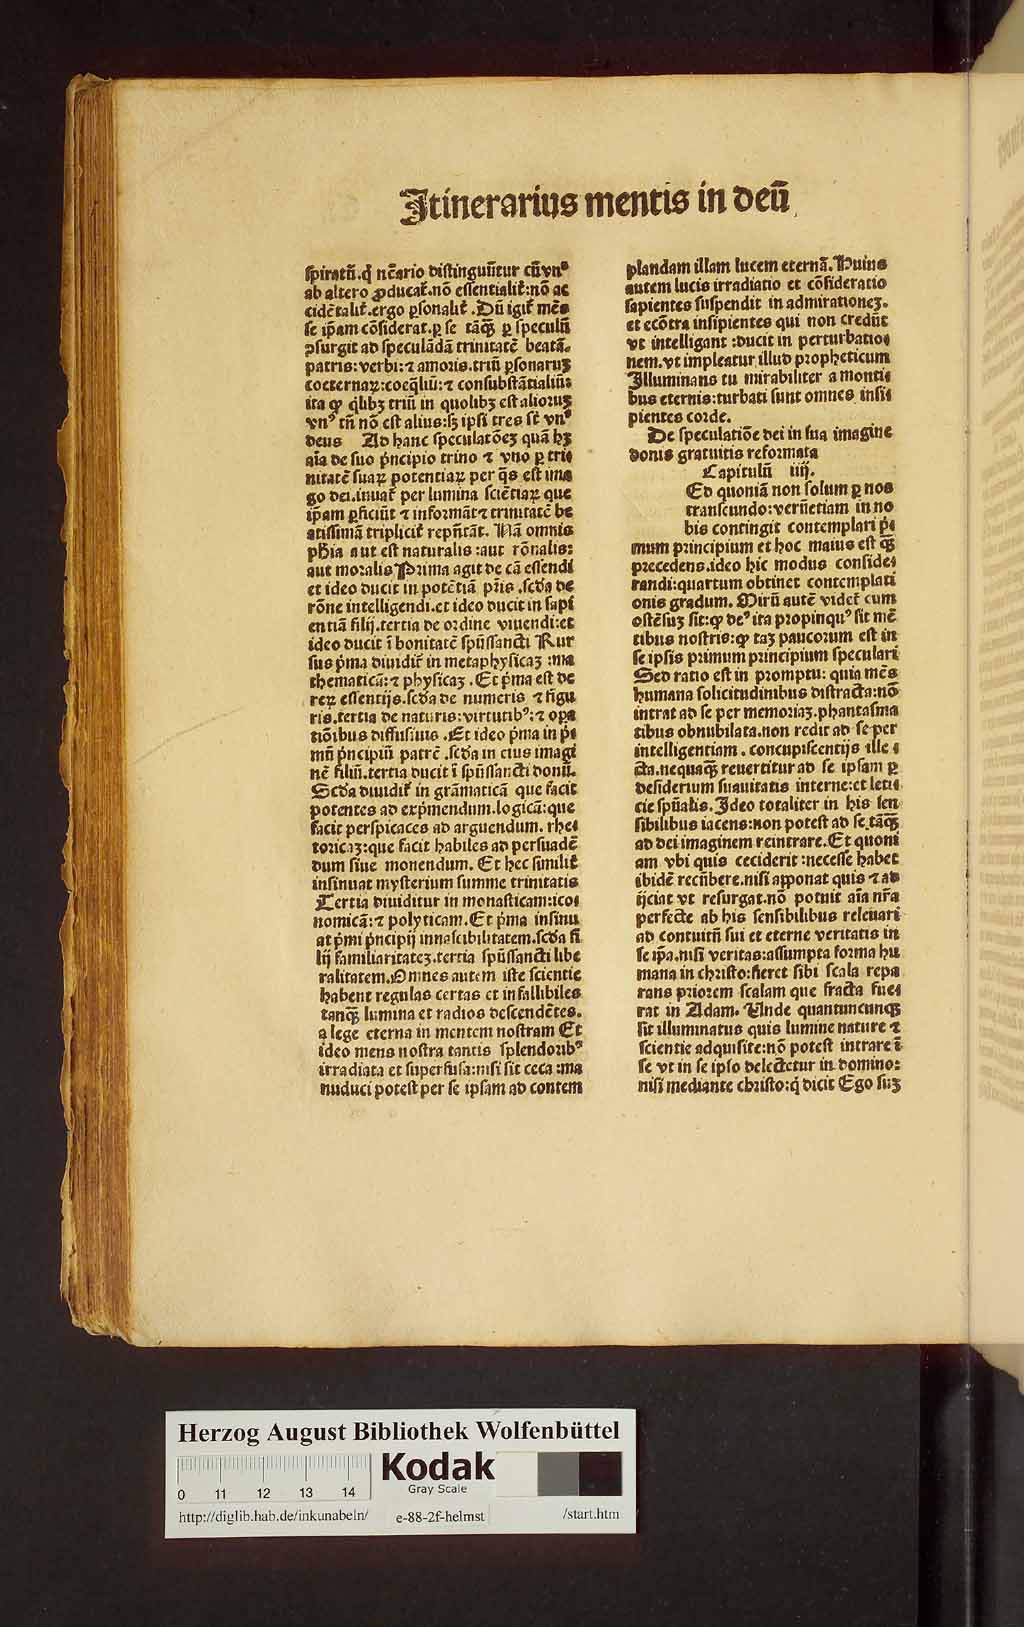 Itinerarius mentis in deū
spiratū.q̇ nc̄ario distinguūtur cū vnꝰ
ab altero ꝓducat᷑.nō essentialit᷑:nō ac
cidētalit᷑.ergo ꝑsonalit᷑. Dū igit᷑ mēs
se ip̄am cōsiderat.ꝑ se tāqꝫ ꝑ speculū
ꝯsurgit ad speculādā trinitatē beatā.
patris:verbi:⁊ amoris.triū ꝑsonaruꝫ
coeternaꝝ:coeq̄liū:⁊ consubstātialiū:
ita ꝙ q̄libꝫ triū in quolibꝫ est alioruꝫ
vnꝰ tn̄ nō est alius:sꝫ ipsi tres st̄ vnꝰ
deus Ad hanc speculatōeꝫ quā hꝫ
aīa de suo pͥncipio trino ⁊ vno ꝑ tri⸗
nitatē suaꝝ potentiaꝝ per q̄s est ima
go dei.iuuat᷑ per lumina sciētiaꝝ que
ip̄am ꝑficiūt ⁊ informāt ⁊ trinitatē be
atissimā triplicit᷑ repn̄tāt. Nā omnis
phīa aut est naturalis:aut rōnalis:
aut moralis Prima agit de cā essendi
et ideo ducit in potētiā pr̄is.scd̄a de
rōne intelligendi.et ideo ducit in sapi
entiā filij.tertia de ordine viuendi:et
ideo ducit ī bonitatē spūssancti Rur
sus pͥma diuidit᷑ in metaphysicaꝫ:ma
thematicā:⁊ physicaꝫ. Et pͥma est de
reꝝ essentijs.scd̄a de numeris ⁊ figu
ris.tertia de naturis:virtutibꝰ:⁊ opa
tiōibus diffusiuis. Et ideo pͥma in pͥ⸗
mū pͥncipiū patrē.scd̄a in eius imagi
nē filiū.tertia ducit ī spūssancti donū.
Scd̄a diuidit᷑ in grāmaticā que facit
potentes ad expͥmendum.logicā:que
facit perspicaces ad arguendum. rhe⸗
toricaꝫ:que facit habiles ad persuadē
dum siue monendum. Et hec similit᷑
insinuat mysterium summe trinitatis
Tertia diuiditur in monasticam:ico⸗
nomicā:⁊ polyticam. Et pͥma insinu
at pͥmi pͥncipij innascibilitatem.scd̄a fi
lij familiaritateꝫ.tertia spūssancti libe
ralitatem. Omnes autem iste scientie
habent regulas certas et infallibiles
tanqꝫ lumina et radios descendētes.
a lege eterna in mentem nostram Et
ideo mens nostra tantis splendoribꝰ
irradiata et superfusa:nisi sit ceca:ma
nuduci potest per se ipsam ad contem
plandam illam lucem eternā. Huius
autem lucis irradiatio et cōsideratio
sapientes suspendit in admirationeꝫ.
et ecōtra insipientes qui non credūt
vt intelligant:ducit in perturbatio⸗
nem.vt impleatur illud propheticum
Illuminans tu mirabiliter a monti⸗
bus eternis:turbati sunt omnes insi⸗
pientes corde.
De speculatiōe dei in sua imagine
donis gratuitis reformata
Capitulū iiij.
Ed quoniā non solum ꝑ nos
transeundo:verūetiam in no
bis contingit contemplari pͥ⸗
mum principium et hoc maius est qꝫ
precedens.ideo hic modus conside⸗
randi:quartum obtinet contemplati
onis gradum. Mirū autē videt᷑ cum
ostēsuꝫ sit:ꝙ deꝰ ita propinquꝰ sit mē
tibus nostris:ꝙ taꝫ paucorum est in
se ipsis primum principium speculari
Sed ratio est in promptu: quia mēs
humana solicitudinibus distracta:nō
intrat ad se per memoriaꝫ.phantasma
tibus obnubilata.non redit ad se per
intelligentiam. concupiscentijs ille⸗
cta.nequaqꝫ reuertitur ad se ipsam ꝑ
desiderium suauitatis interne:et leti⸗
cie spūalis. Ideo totaliter in his sen
sibilibus iacens:non potest ad se.tāqꝫ
ad dei imaginem reintrare. Et quoni
am vbi quis ceciderit:necesse habet
ibidē recūbere.nisi apponat quis ⁊ ad
ijciat vt resurgat.nō potuit aīa nr̄a
perfecte ab his sensibilibus releuari
ad contuitū sui et eterne veritatis in
se ip̄a.nisi veritas:assumpta forma hu
mana in christo:fieret sibi scala repa
rans priorem scalam que fracta fue⸗
rat in Adam. Unde quantuncunqꝫ
sit illuminatus quis lumine nature ⁊
scientie adquisite:nō potest intrare ī
se vt in se ipso delectetur in domino:
nisi mediante christo:q̇ dicit Ego suꝫ
Herzog August Bibliothek Wolfenbüttel
0 11 12 13 14
Kodak
Gray Scale
http://diglib.hab.de/inkunabeln/ e-88-2f-helmst /start.htm